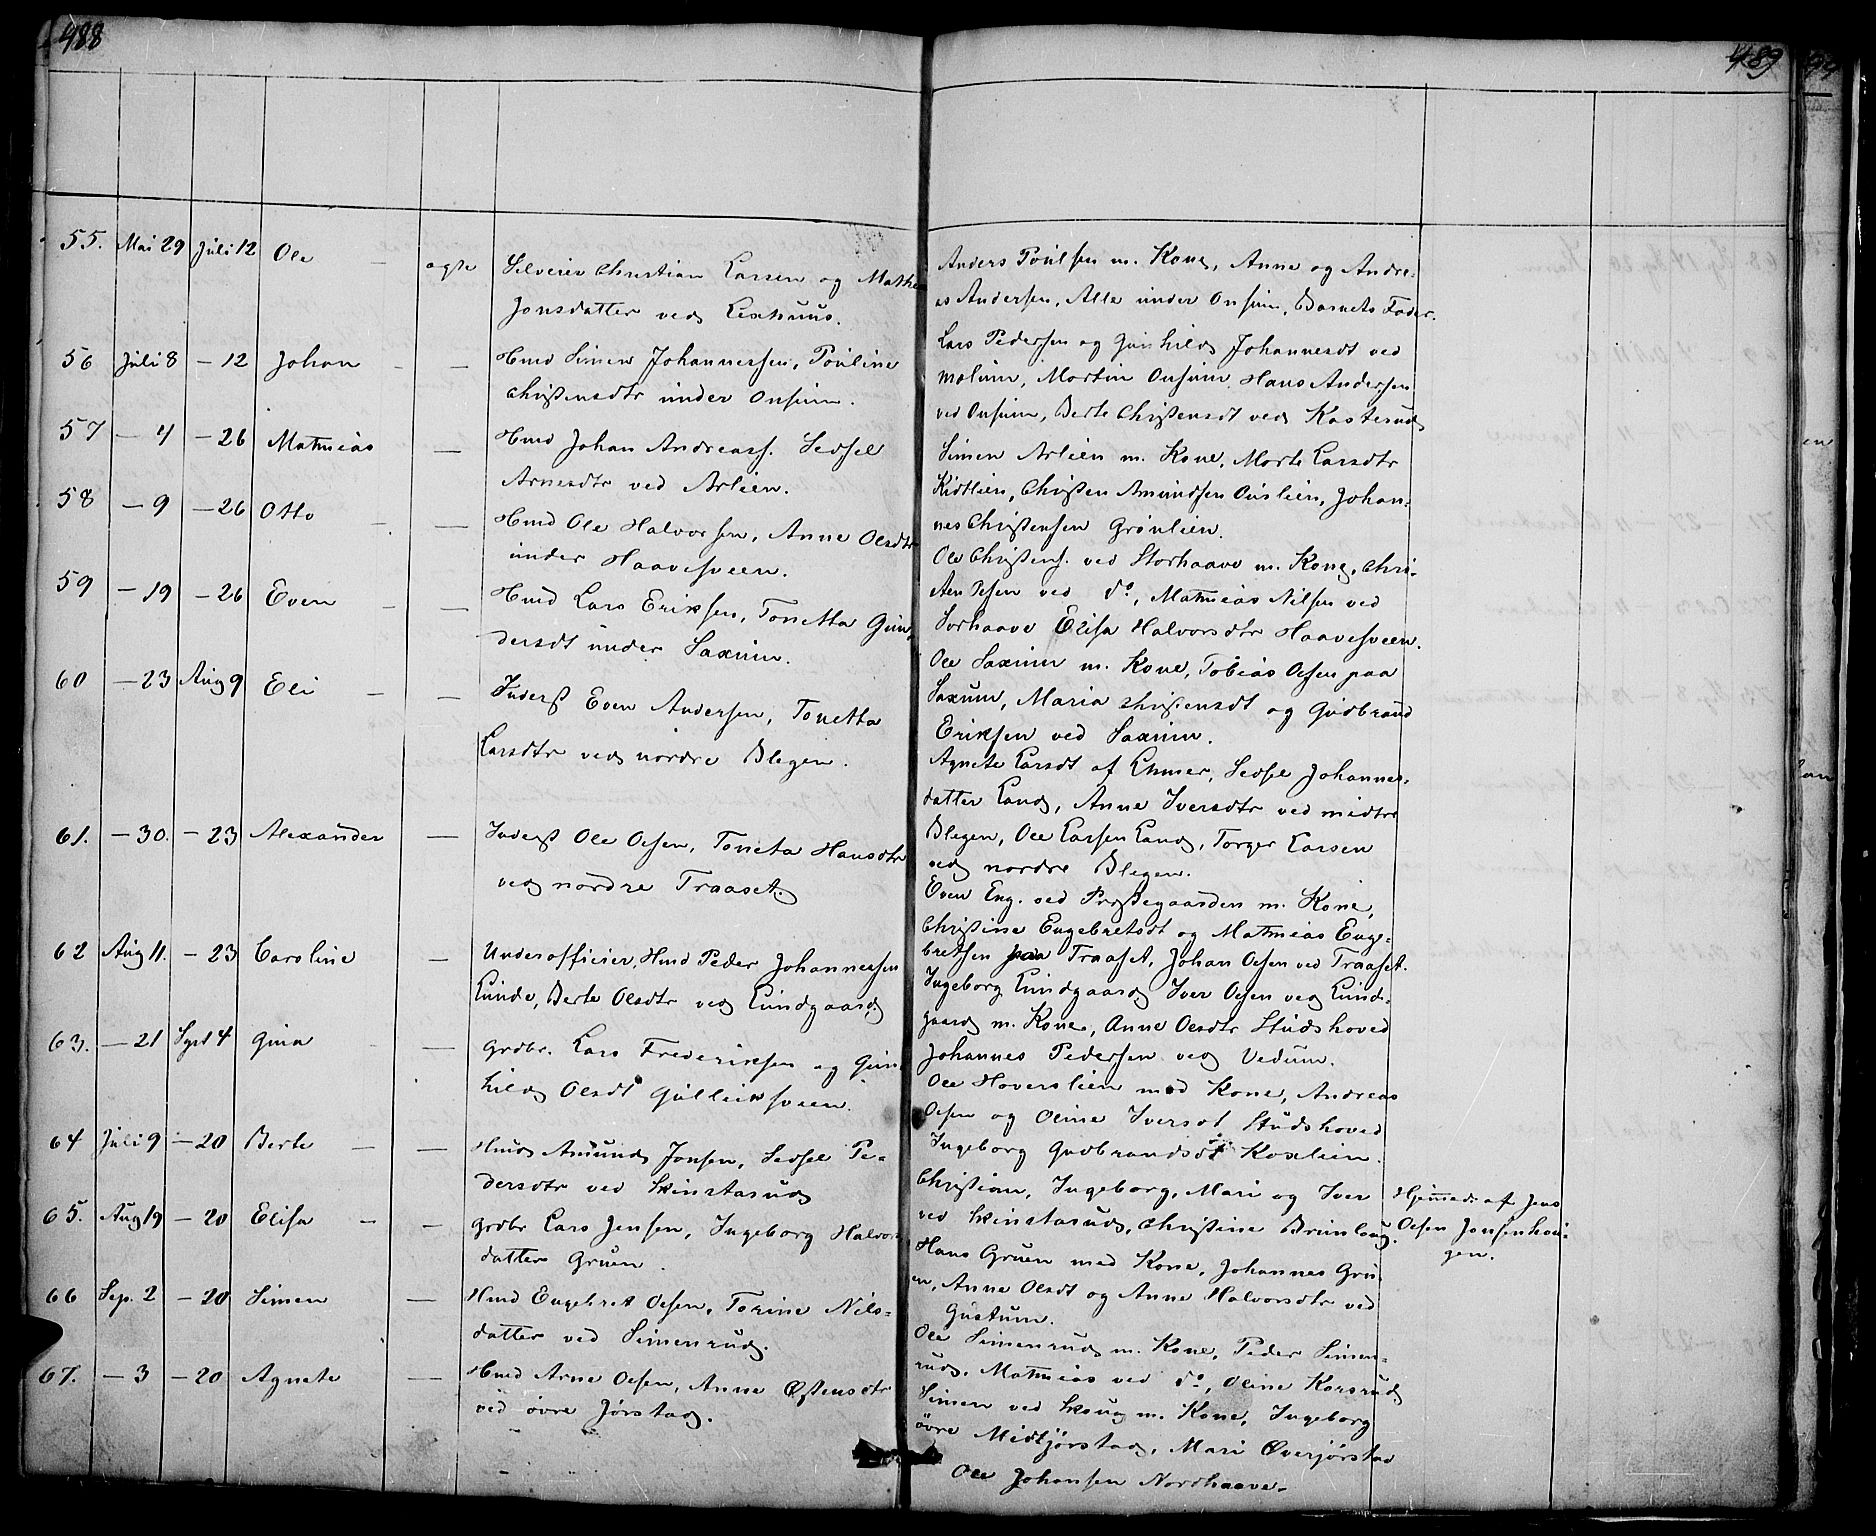 488
55. Mai 29 Juli 12 Ole — ægte
Christian Larsen og Mathea
Jonsdatter ved
56 Juli 8 — 12 Johan — —
Hmd Simen Johannessen, Pouline
Christensdtr under Onsum.
57 — 4 — 26 Mathias —
Hmd Johan Andreass. Sedsel
Arnesdtr ved Arlien.
58 — 9 — 26 Otto — —
Hmd Ole Halvorsen, Anne Olsdtr
under Haavesveen.
59 — 19 — 26 Even — —
Hmd Lars Eriksen, Tonetta Gun
dersdt under Saxum.
60 — 23 Aug 9 Eli — —
Inderst Even Andersen, Tonetta
Larsdtr ved nordre Blegen.
61. — 30. — 23 Alexander —
Inderst Ole Olsen, Toneta Hansdtr
ved nordre Traaset.
62 Aug 11. — 23 Caroline —
Underofficier, Hmd Peder Johannessen
Lunde, Berte Olsdtr ved Lundgaard.
63. — 21 Sept 4 Gina —
Grdbr. Lars Frederiksen og Gun
hild Olsdt Gulliksveen.
64 Juli 9 — 20 Berte — —
Hmd Amund Jonsen, Sedsel Pe-
dersdtr ved Skinstasud
65. Aug 19 — 20 Elisa — —
Grdbr Lars Jensen, Ingeborg Halvors
datter Gruen.
66 Sep. 2 — 20 Simen —
Hmd Engebret Olsen, Torine Nils-
datter ved Simenrud.
67. — 3 — 20 Agnete —
Hmd Arne Olsen, Anne Østensdtr
ved øvre Jørstad.
489
Anders Poulsen m. Kone, Anne og Andre-
as Andersen, Alle under Onsum, Barnets Fader.
Lars Pedersen og Gunhild Johannesdt ved
Molum, Martin Onsum, Hans Andersen
ved Onsum, Berte Christensdt ved Kasterud
Simen Arlien m. Kone, Marte Larsdtr
Kidtlien, Christen Amundsen Auslien, Johan-
nes Christensen Grønlien.
Ole Christens. ved Storhaave m. Kone, Chri-
ved do, Mathias Nilsen ved
Sorhaave Elisa Halvorsdtr Haavesveen.
Ole Saxum m. Kone, Tobias Olsen paa
Saxum, Maria Christensdt og Gudbrand
Eriksen ved Saxum.
Agnete Larsdt af Elmer, Sedsel Johannes-
datter Land, Anne Iversdtr ved midtre
Blegen, Ole Larsen Land, Torger Larsen
ved nordre Blegen.
Even Eng. ved Prestegaarden m. Kone,
Christine Engebretsdt og Mathias Enge-
bretsen paa Traaset, Johan Olsen ved Traaset.
Ingeborg Lundgaard Iver Olsen ved Lund-
gaard m. Kone, Anne Olsdtr Studshoved
Johannes Pedersen ved Vedum.
Ole Hoverslien med Kone, Andreas
Olsen og Oline Iversdt Studshoved
Ingeborg Gudbrandsdt Koxlien.
Christian, Ingeborg, Mari og Iver
ved Skinstasud, Christine Brunlaug.
Hjemmed. af Jens
Olsen Jonsenhau-
gen.
Hans Gruen med Kone, Johannes Gru-
en, Anne Olsdt og Anne Halvorsdtr ved
Gustum.
Ole Simenrud m. Kone, Peder Simen-
rud, Mathias ved do, Oline Korsrud
Simen ved Skoug m. Kone, Ingeborg
øvre Midtjørstad, Mari Øverjørstad
Ole Johansen Nordhaave.